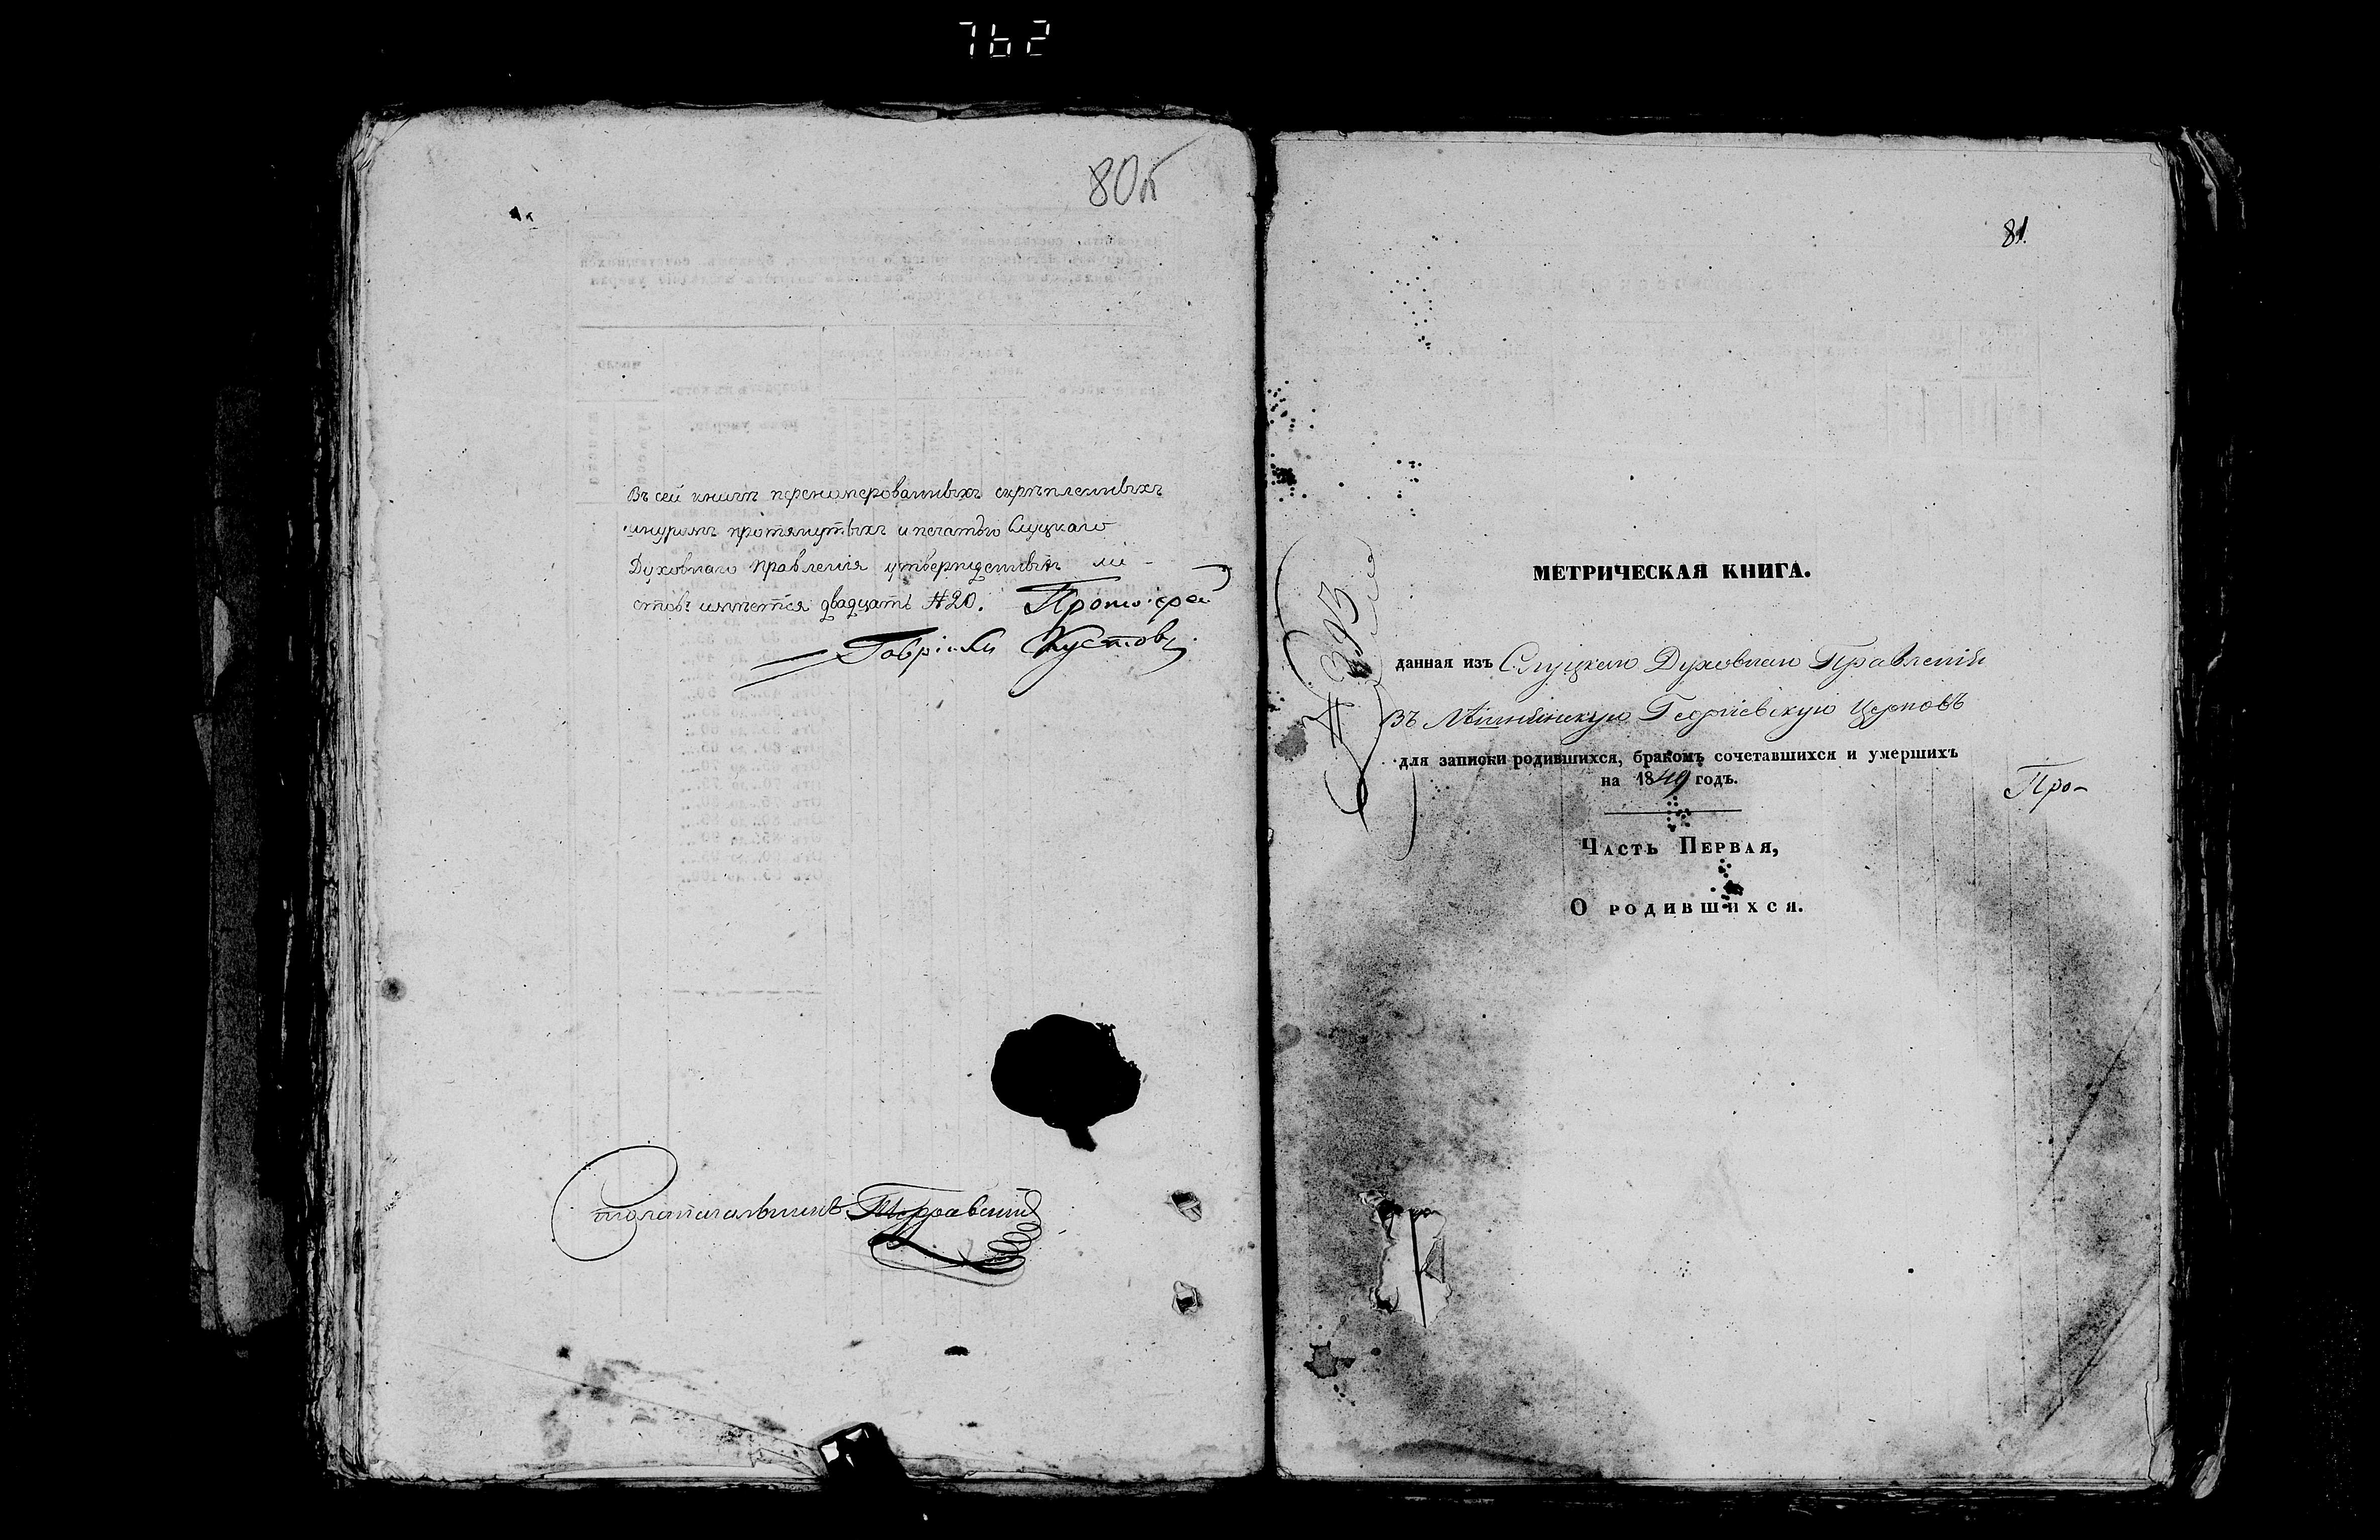 762
80об
Въ сей книгѣ перенумерованныхъ скрѣпленныхъ
шнуромъ протянутыхъ и печатью Слуцкаго
Духовнаго Правленія утвержденныхъ ли-
стовъ имѣется двадцать #20. Протоіерей
Гавріилъ Кустовъ
Столоначальникъ
81.
МЕТРИЧЕСКАЯ КНИГА.
# 393
данная изъ Слуцкаго Духовнаго Правленія
Въ Георгіевскую Церковь
для записки родившихся, бракомъ сочетавшихся и умершихъ
на 1849 годъ.
Про-
Часть Первая,
О родившихся.